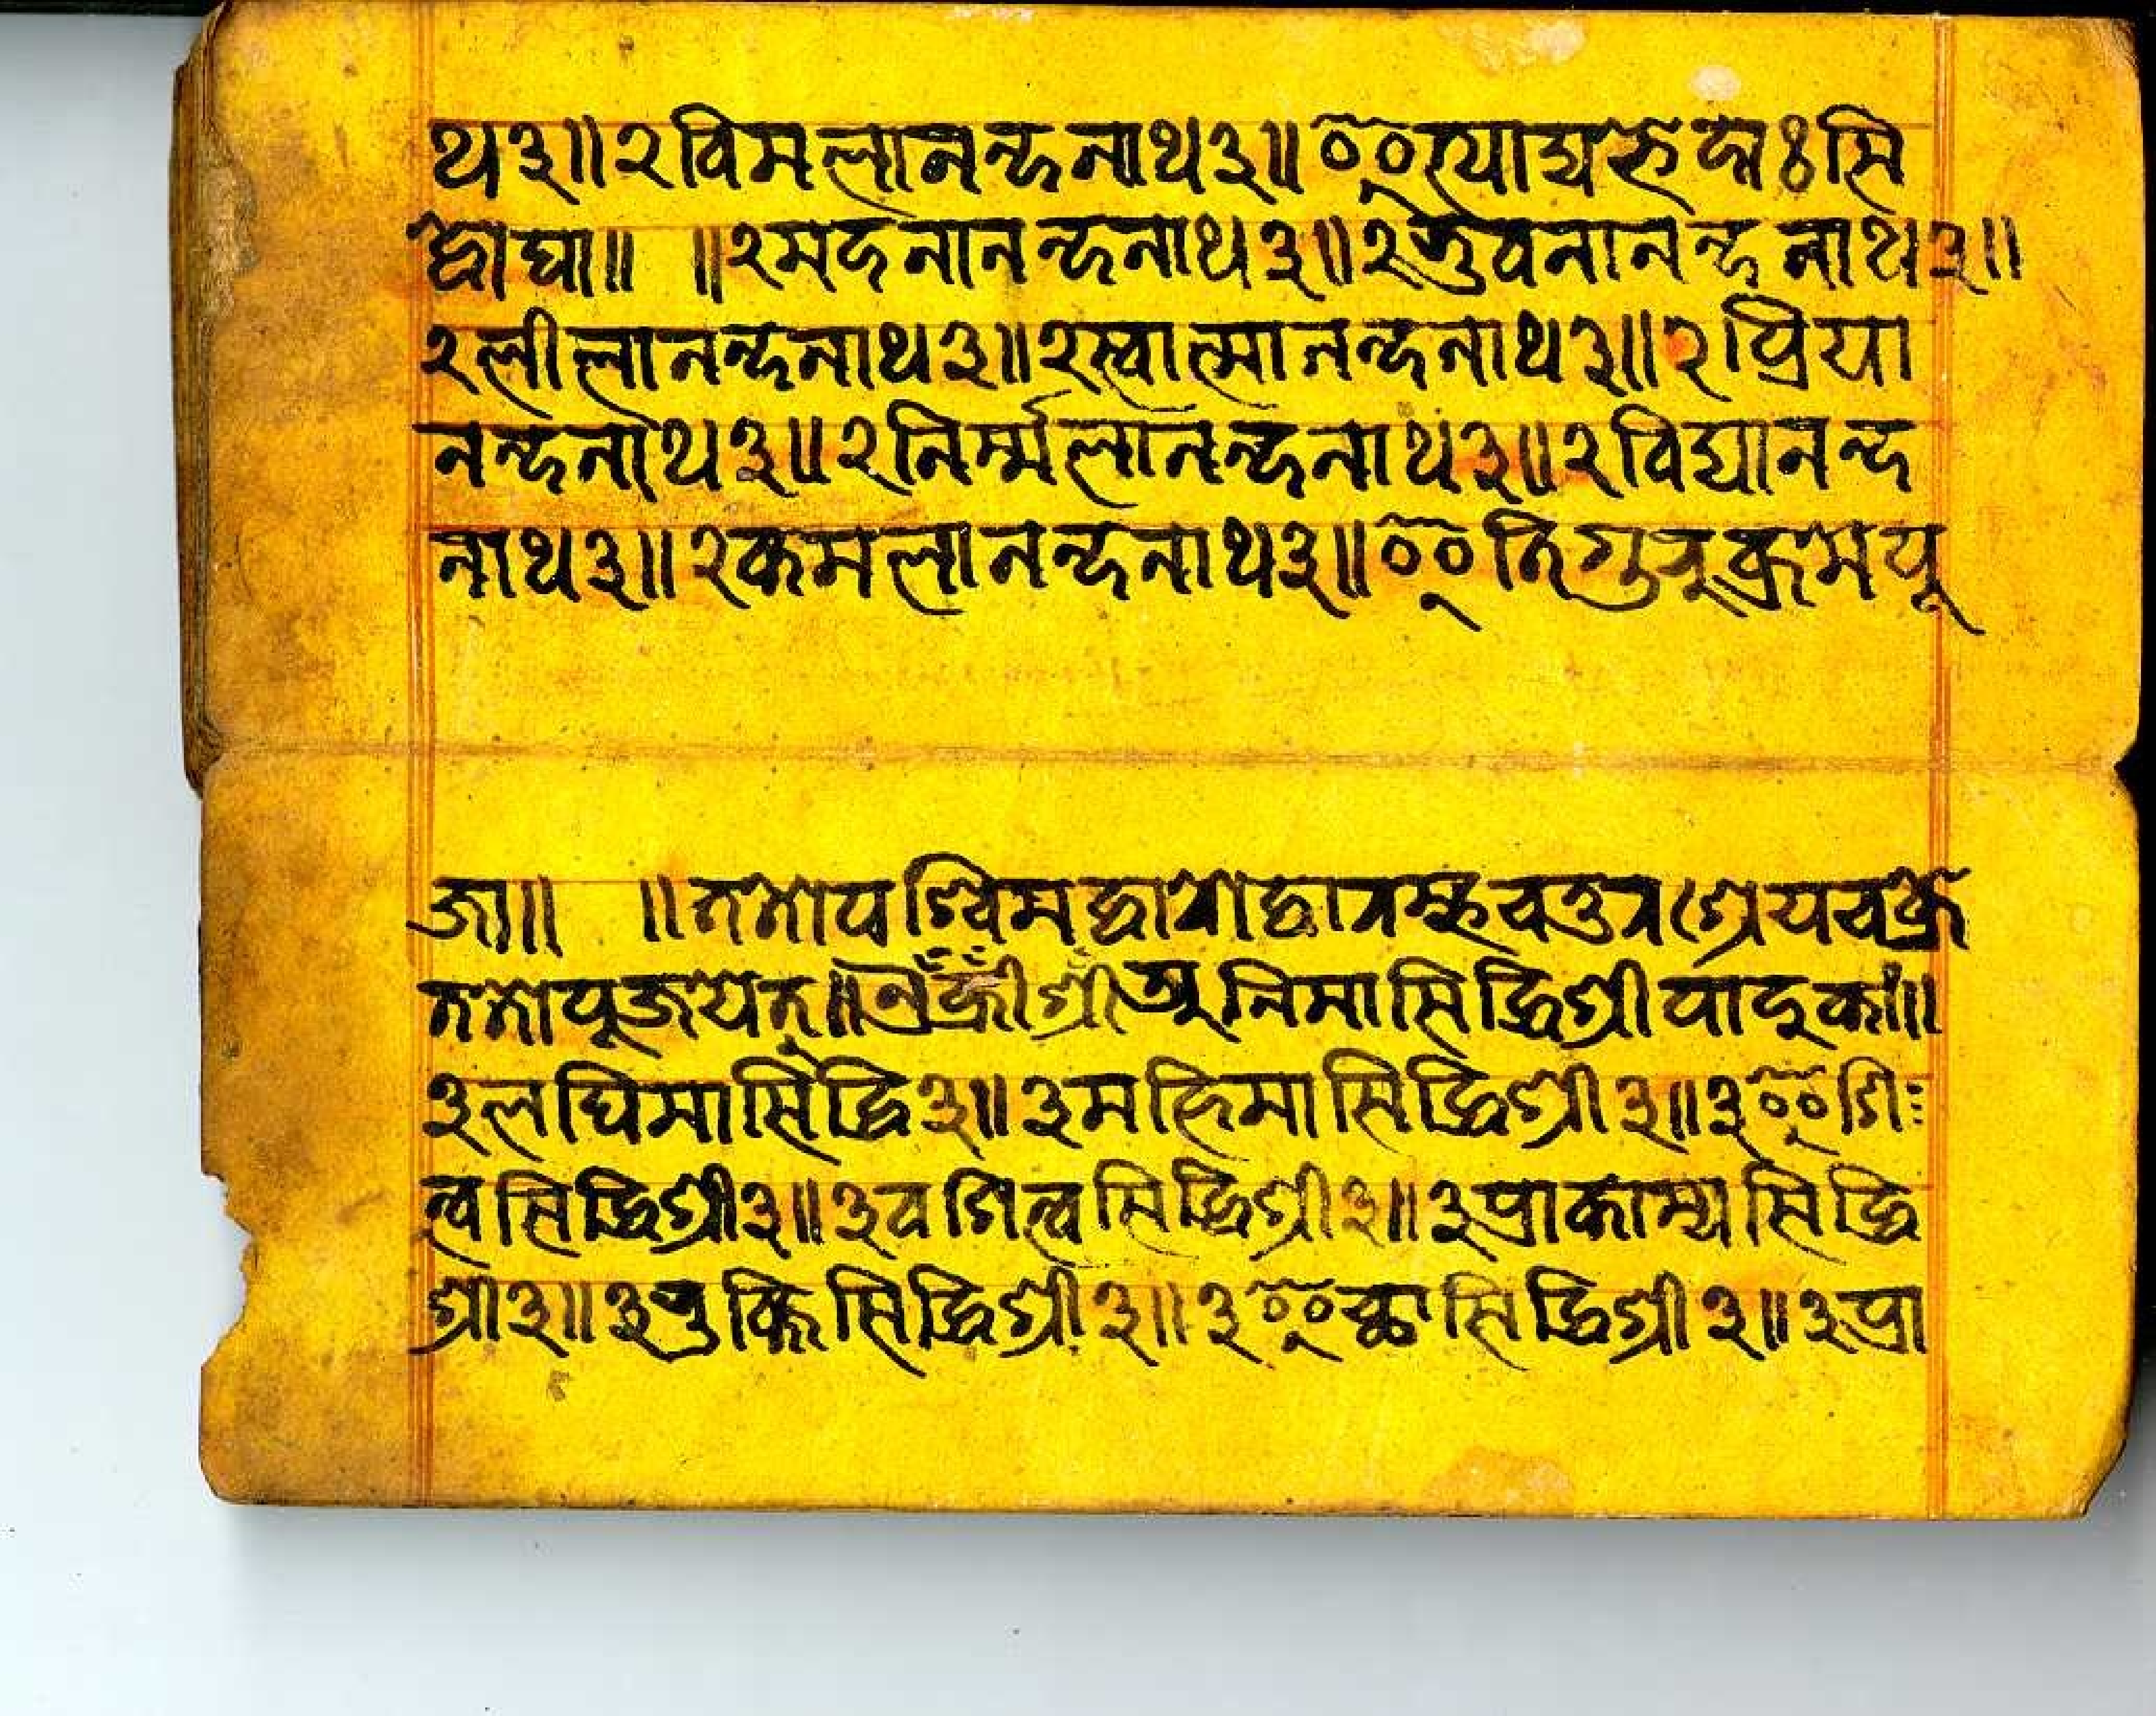 थ३॥२विमलानन्दनाथ३॥इत्याद्यष्टौ सि
द्धौघा॥ ॥२मदनानन्दनाथ३॥२भुवनानन्दनाथ३॥
२लीलानन्दनाथ३॥२स्वात्मानन्दनाथ३॥२प्रिया
नन्दनाथ३॥२निर्म्मलानन्दनाथ३॥२विद्यानन्द
नाथ३॥२कमलानन्दनाथ३॥इतिगुरूक्रमपू
जा॥ ॥ततोपश्चिमद्वारोद्वारम्हचतुरश्रेयचक्रे
ततोपूजयेत्॥ऐँह्रीँश्रीँअनिमासिद्धिश्रीपादुकां॥
३लघिमासिद्धि३॥३महिमासिद्धिश्री३॥३इशि
त्वसिद्धिश्री३॥३वशित्वसिद्धिश्री३॥३प्राकाम्यसिद्धि
श्री३॥३भुक्तिसिद्धिश्री३॥३इच्छासिद्धिश्री३॥३प्रा